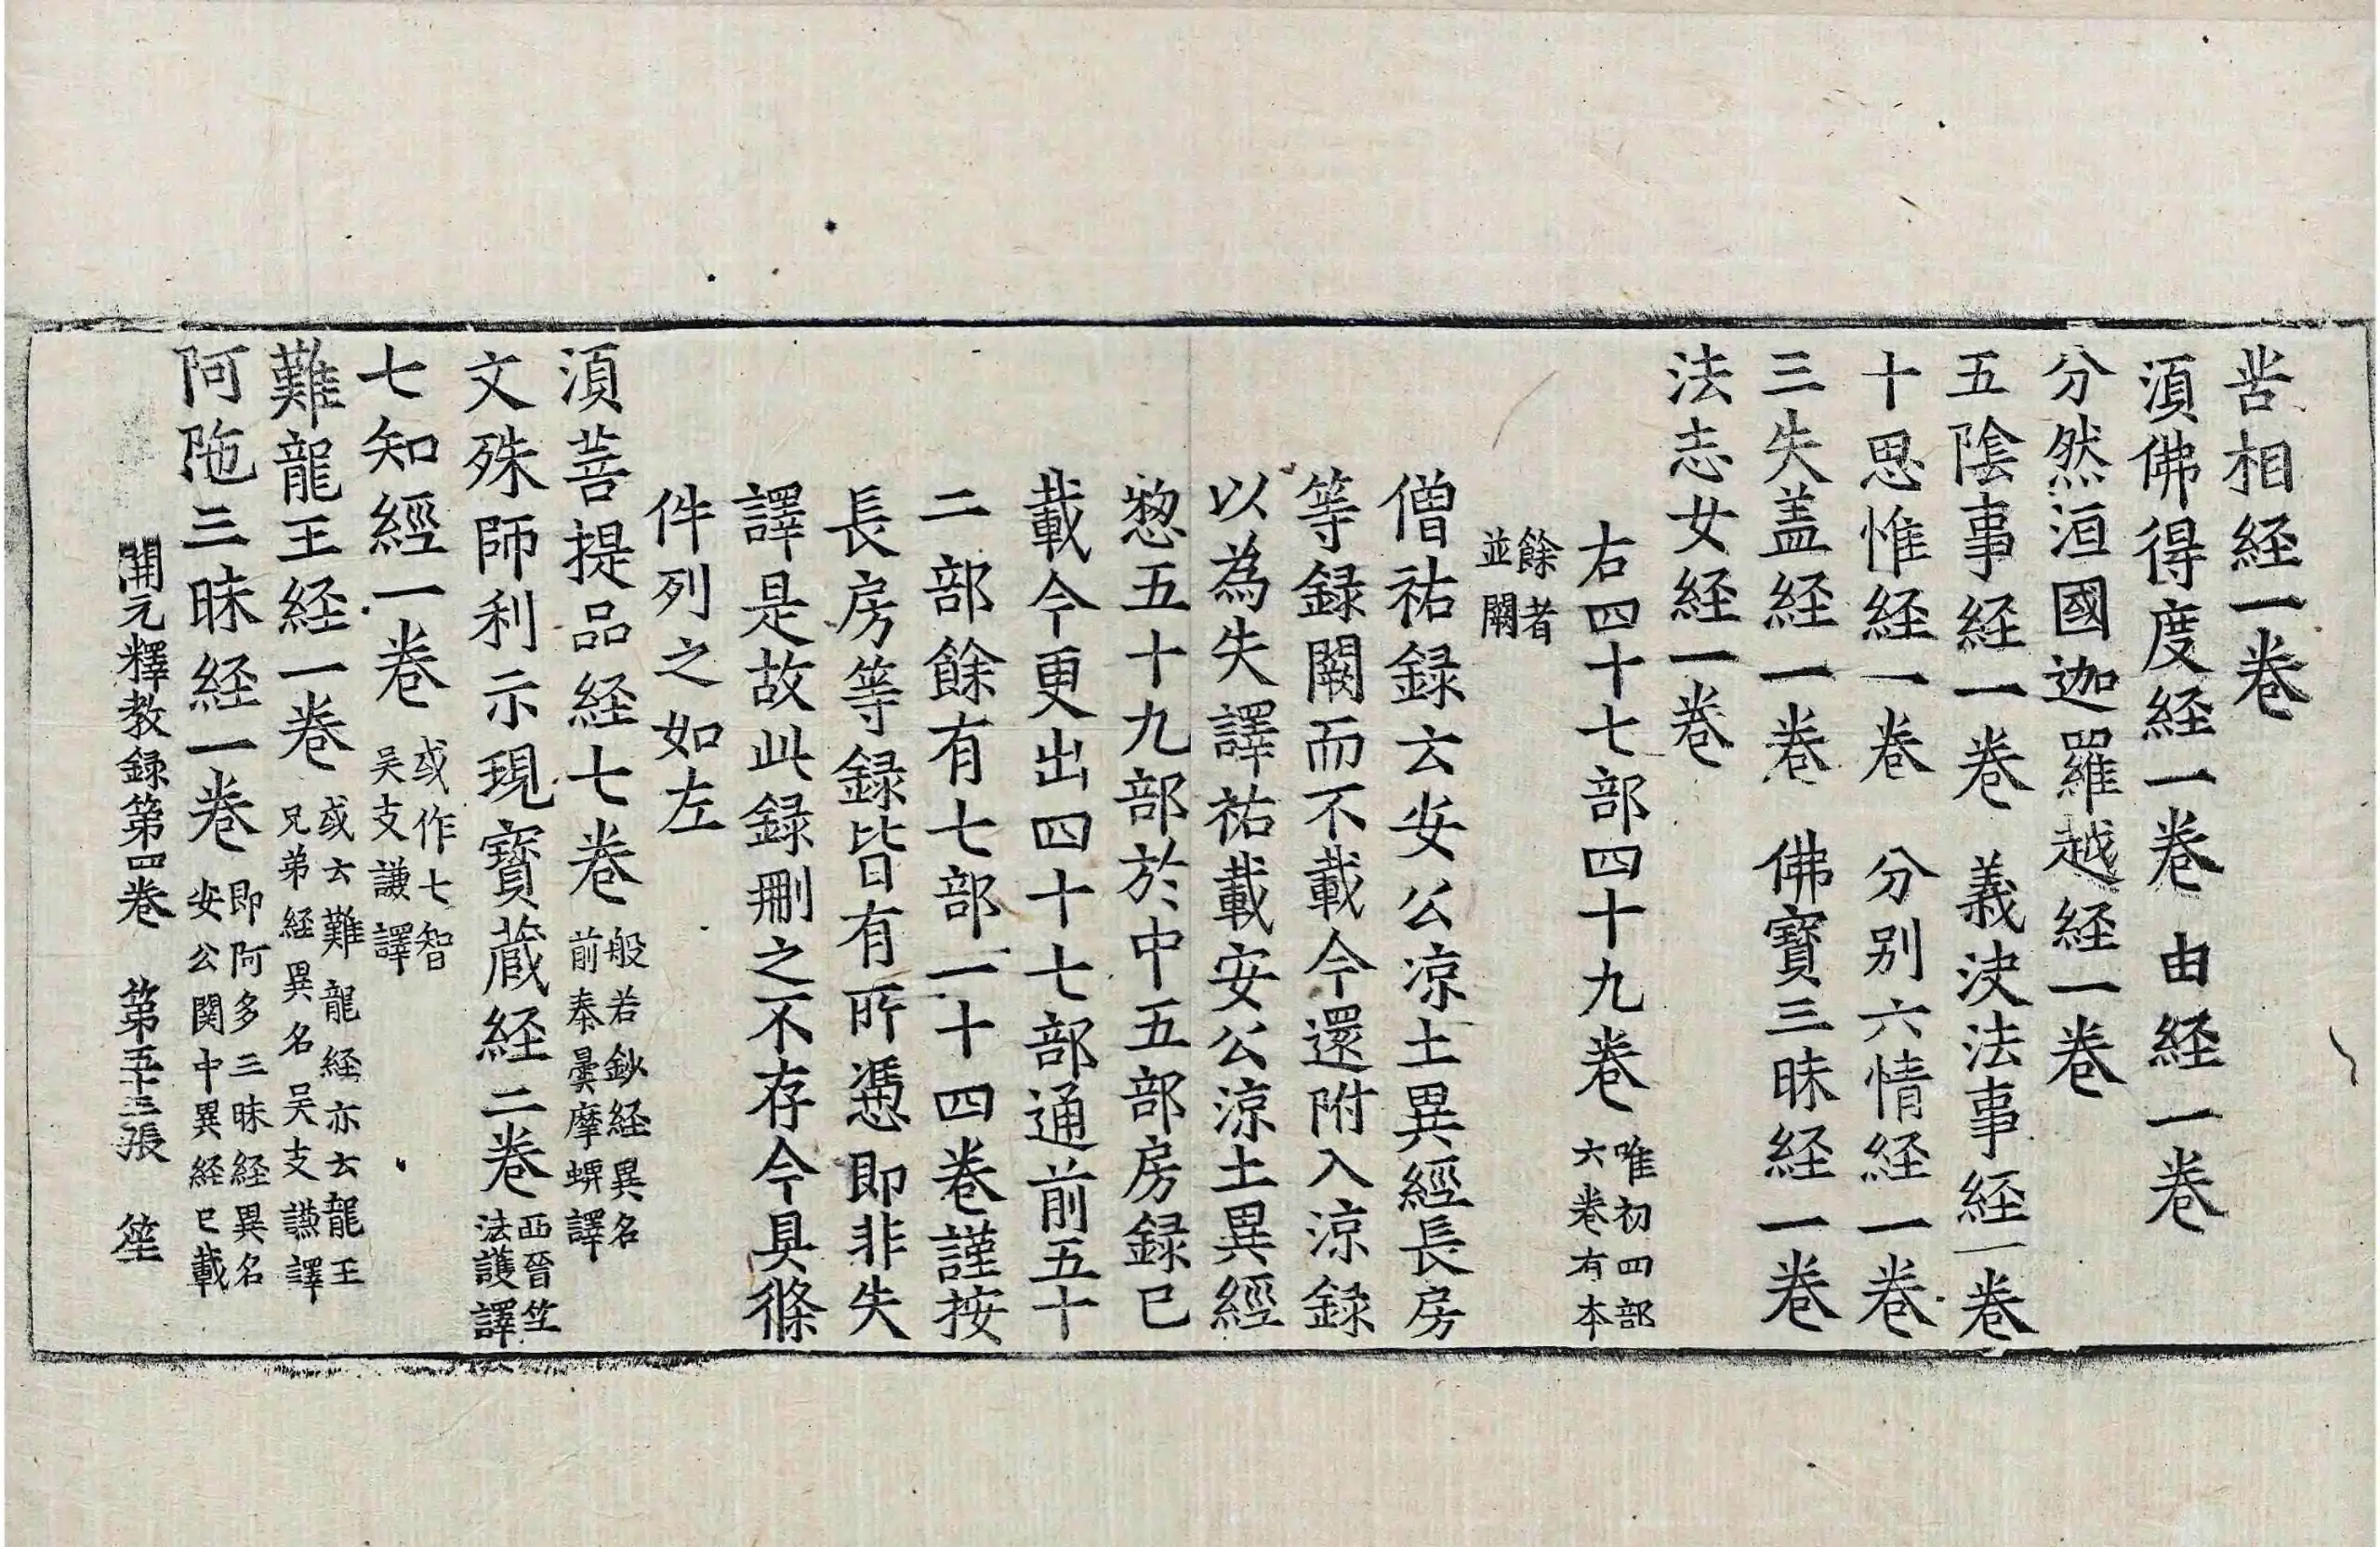 苦相経一卷
湏佛得度経一卷　由経一卷
分然洹國迦羅越経一卷
五隂事経一卷　義決法事経一卷
十思惟経一卷　分别六情経一卷
三失盖経一卷　佛寳三昧経一卷
法志女経一卷
右四十七部四十九卷 唯初四部六卷有本
餘者並闕
僧祐録云安公凉土異經長房
等録闕而不載今還附入涼録
以為失譯祐載安公涼土異經
惣五十九部於中五部房録已
載今更出四十七部通前五十
二部餘有七部一十四卷謹按
長房等録皆有所憑即非失
譯是故此録刪之不存今具條
件列之如左
湏菩提品経七卷 般若鈔経異名前秦曇摩蜱譯
文殊師利示現寳蔵経二卷 西晉竺法護譯
七知經一卷 或作七智吴支謙譯
難龍王経一卷 或云難龍経亦云龍王兄弟経異名吴支謙譯
阿陁三昧経一卷 即阿多三昧経異名安公関中異経已載
開元釋教録第四卷　第五十三張　笙